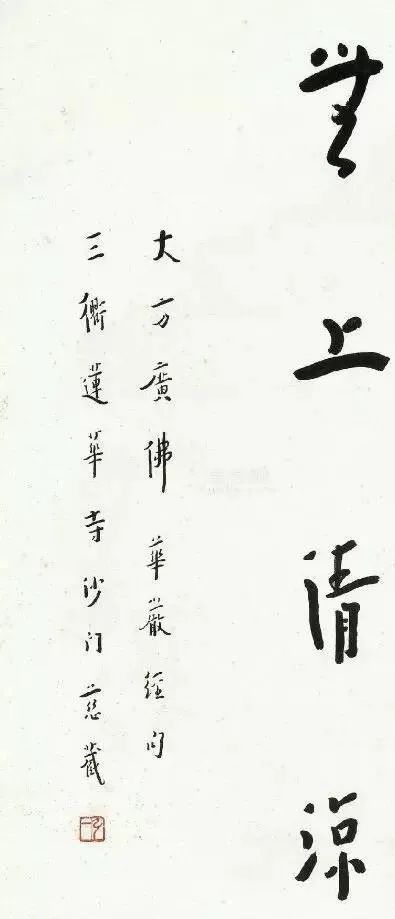 無上清涼
大方廣佛華嚴經句
三衢蓮華寺沙门慈藏